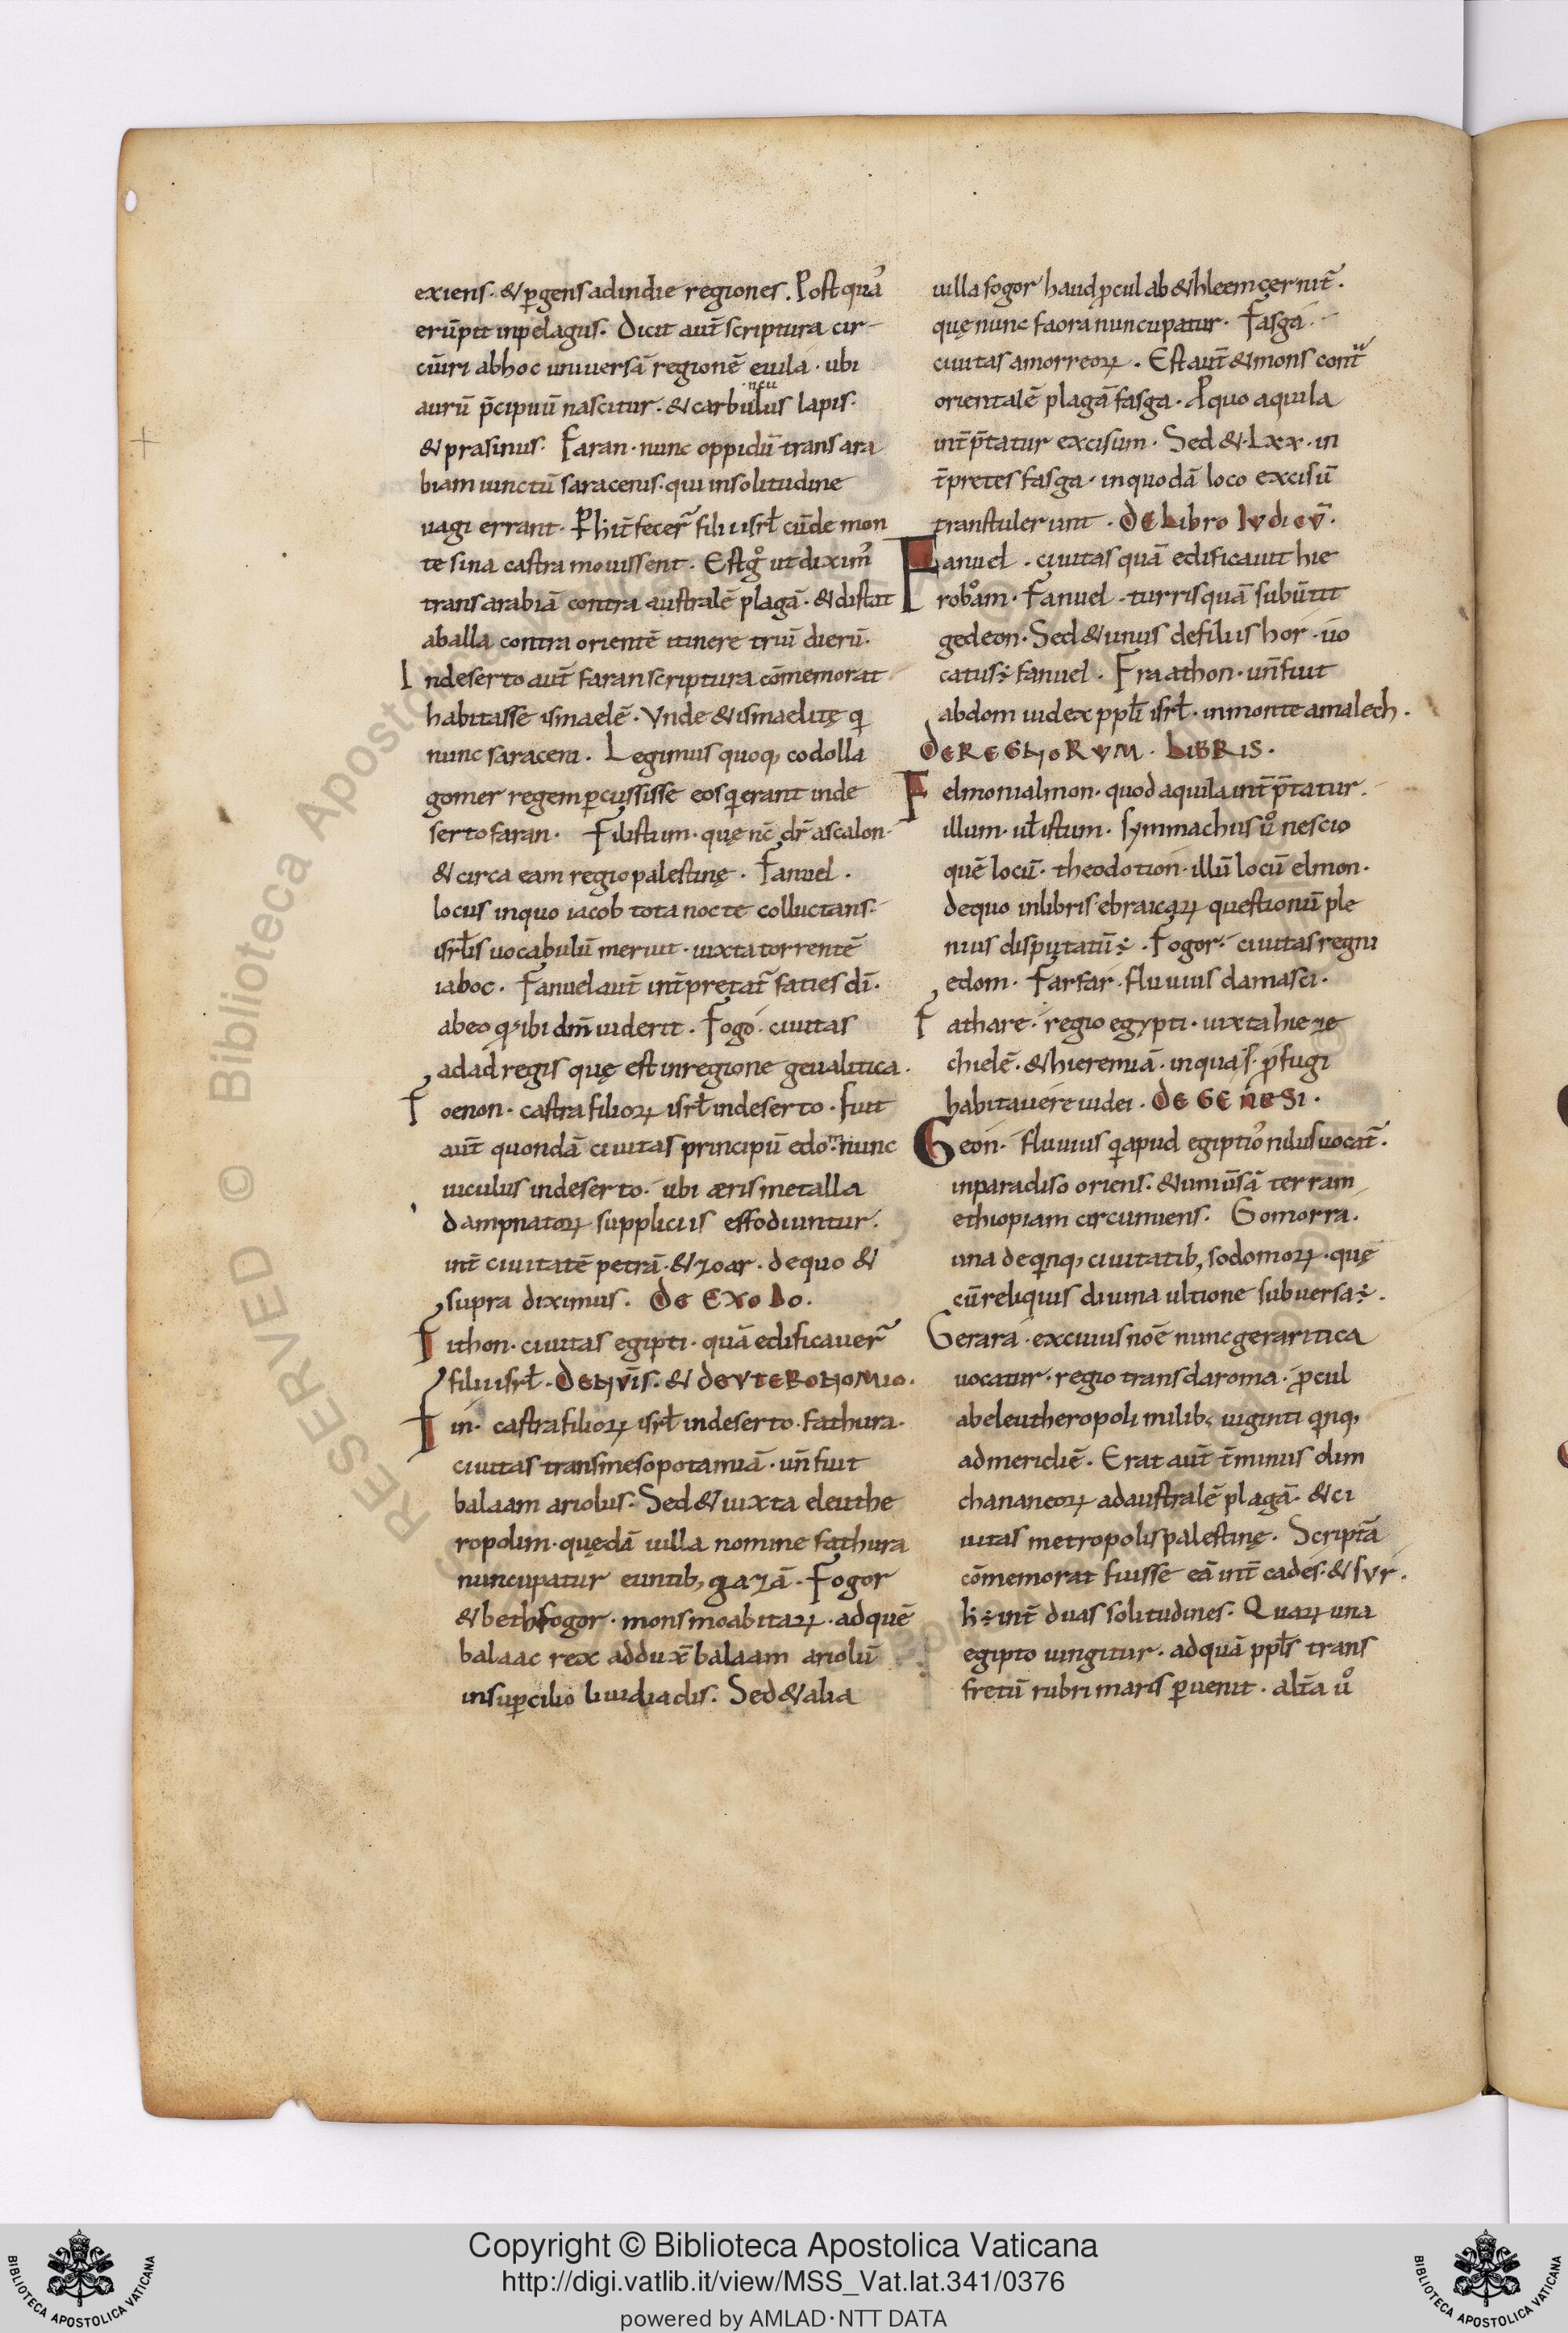 exiens· & ꝑgens ad indie regiones. Post quā
erūpit in pelagus. Dicit aut̄ scriptura cir-
cūiri ab hoc uniuersā regionē euila· ubi
aurū p̄cipuū nascitur· & carbulus lapis·
ncu
& prasinus. Faran· nunc oppidū trans ara
biam iunctū saracenis· qui in solitudine
uagi errant. P hūt fecer̄ filii isrł cū de mon
te sina castra mouissent. Est gͦ ut diximꝰ
trans arabiā contra australē plagā· & distat
ab alla contra orientē itinere triū dierū.
In deserto aut̄ faran scriptura cōmemorat
habitasse ismaelē· Vnde & ismaelitę q̄
nunc saraceni. Legimus quoq; codolla
gomer regem ꝑcussisse eos q̄ erant in de
serto faran. Filistiim· quę nc̄ dr̄ ascalon·
& circa eam regio palestinę. Fanuel.
locus in quo iacob tota nocte colluctans·
isrłis uocabulū meruit· iuxta torrentē
iaboc. Fanuel aut̄ int̄pretat̄ faties dī.
ab eo q̄ ibi dm̄ uiderit. Fogo. ciuitas
adad regis quę est in regione geualitica.
Foenon· castra filioꝝ isrł in deserto· fuit
aut̄ quondā ciuitas principū edom· nunc
uiculus in deserto· ubi æris metalla
dampnatoꝝ suppliciis effodiuntur·
int̄ ciuitatē petrā· & zoar· de quo &
supra diximus. DE EXODO.
Fithon· ciuitas egipti· quā edificauer̄
filii isrł. DE NVIS· & DEVTERONOMIO.
Fin· castra filioꝝ isrł in deserto· fathura·
ciuitas trans mesopotamiā· uñ fuit
balaam ariolus· Sed & iuxta eleuthe
ropolim· quędā uilla nomine fathura
nuncupatur euntib; gazā. Fogor
& bethfogor· mons moabitaꝝ· ad quē
balaac rex addux̄ balaam ariolū
in suꝑcilio liuidiadis. Sed & alia
uilla fogor haud ꝓcul ab &hleem cernit̄.
quę nunc faora nuncupatur. Fasga·
ciuitas amorreoꝝ. Est aut̄ & mons cont
orientalē plagā fasga· A quo aquila
int̄p̄tatur excisum. Sed & ·Lxx· in
t̄pretes fasga· in quodā loco excisū
transtulerunt. DE LIBRO IVDICV̄.
Fanuel· ciuitas quā edificauit hie
roboam. Fanuel· turris quā subūtit
gedeon. Sed & unus de filiis hor· uo
catus÷ fanuel. Fraathon· uñ fuit
abdom iudex pplī isrł· in monte amalech.
DE REGNORVM· LIBRIS.
Felmonialmon· quod aquila int̄p̄tatur·
illum· ul istum· symmachus uͦ nescio
quē locū· theodotion· illū locū elmon·
de quo in libris ebraicaꝝ questionū ple
nius disputatū÷· Fogor· ciuitas regni
edom. Farfar· fluuius damasci.
Fathare· regio egypti· iuxta hieze
chielē· & hieremiā· in qua ꝓfugi
habitauere iudei. DE GENESI.
Geon· fluuius q̄ apud egiptioꝰ nilus uocat̄.
in paradiso oriens· & uniūsā terram
ethiopiam circumiens. Gomorra.
una de q̄nq; ciuitatib; sodomoꝝ· quę
cū reliquis diuina ultione subuersa÷.
Gerara· ex cuius nōe nunc geraritica
uocatur· regio trans daroma· ꝓcul
ab eleutheropoli milib; uiginti q̄nq;
ad meridiē. Erat aut̄ t̄minus olim
chananeoꝝ ad australē plagā· & ci
uitas metropolis palestinę. Script̄a
cōmemorat fuisse eā int̄ cades· & sur.
h÷ int̄ duas solitudines. Quaꝝ una
egipto iungitur· ad quā pplſ trans
fretū rubri maris ꝑuenit· alt̄a uͦ
Copyright © Biblioteca Apostolica Vaticana
http://digi.vatlib.it/view/MSS_Vat.lat.341/0376
powered by AMLAD·NTT DATA